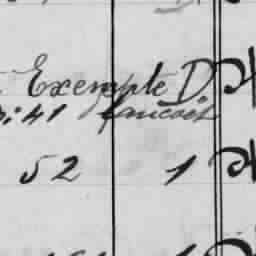 Exempte D.
:41 Hancock
52 1